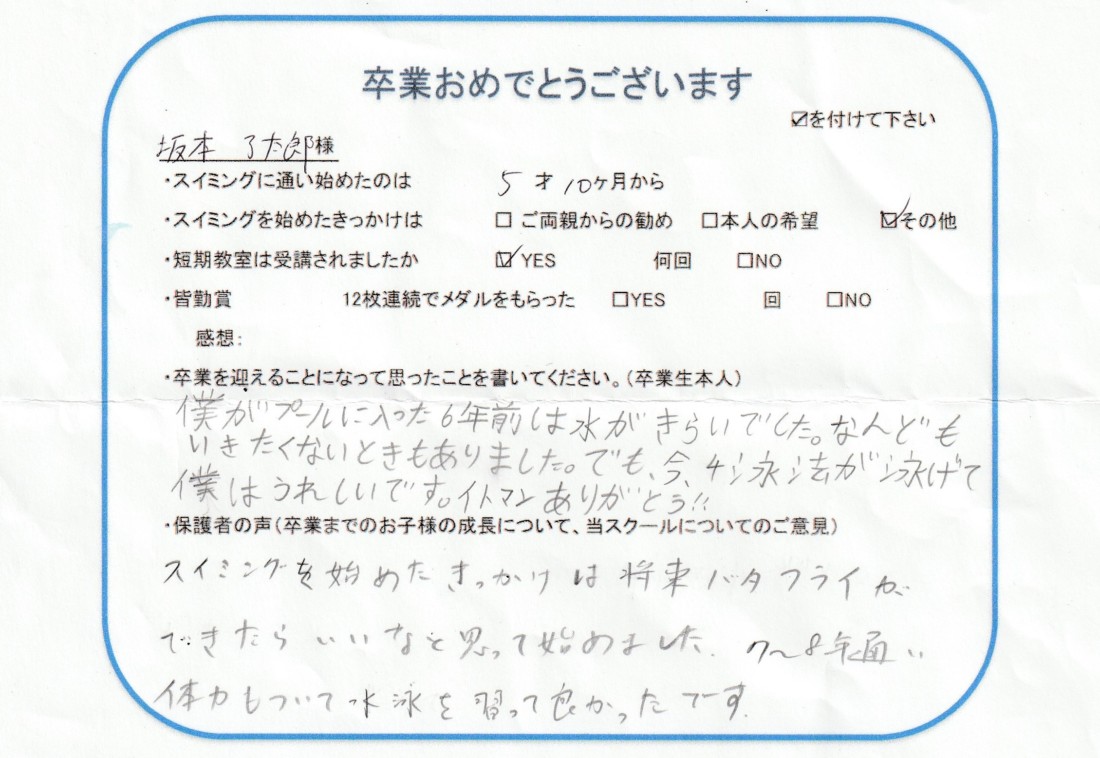 卒業おめでとうございます
☑を付けて下さい
坂本 了太郎様
・スイミングに通い始めたのは 5才10ヶ月から
・スイミングを始めたきっかけは □ご両親からの勧め □本人の希望 ☑その他
・短期教室は受講されましたか ☑YES 何回 □NO
・皆勤賞 12枚連続でメダルをもらった □YES 回 □NO
感想：
・卒業を迎えることになって思ったことを書いてください。（卒業生本人）
僕がプールに入った6年前は水がきらいでした。なんども
いきたくないときもありました。でも、今、4泳法が泳げて
僕はうれしいです。イトマンありがとう!!
・保護者の声（卒業までのお子様の成長について、当スクールについてのご意見）
スイミングを始めたきっかけは将来バタフライが
できたらいいなと思って始めました。7〜8年通い
体力もついて水泳を習って良かったです。